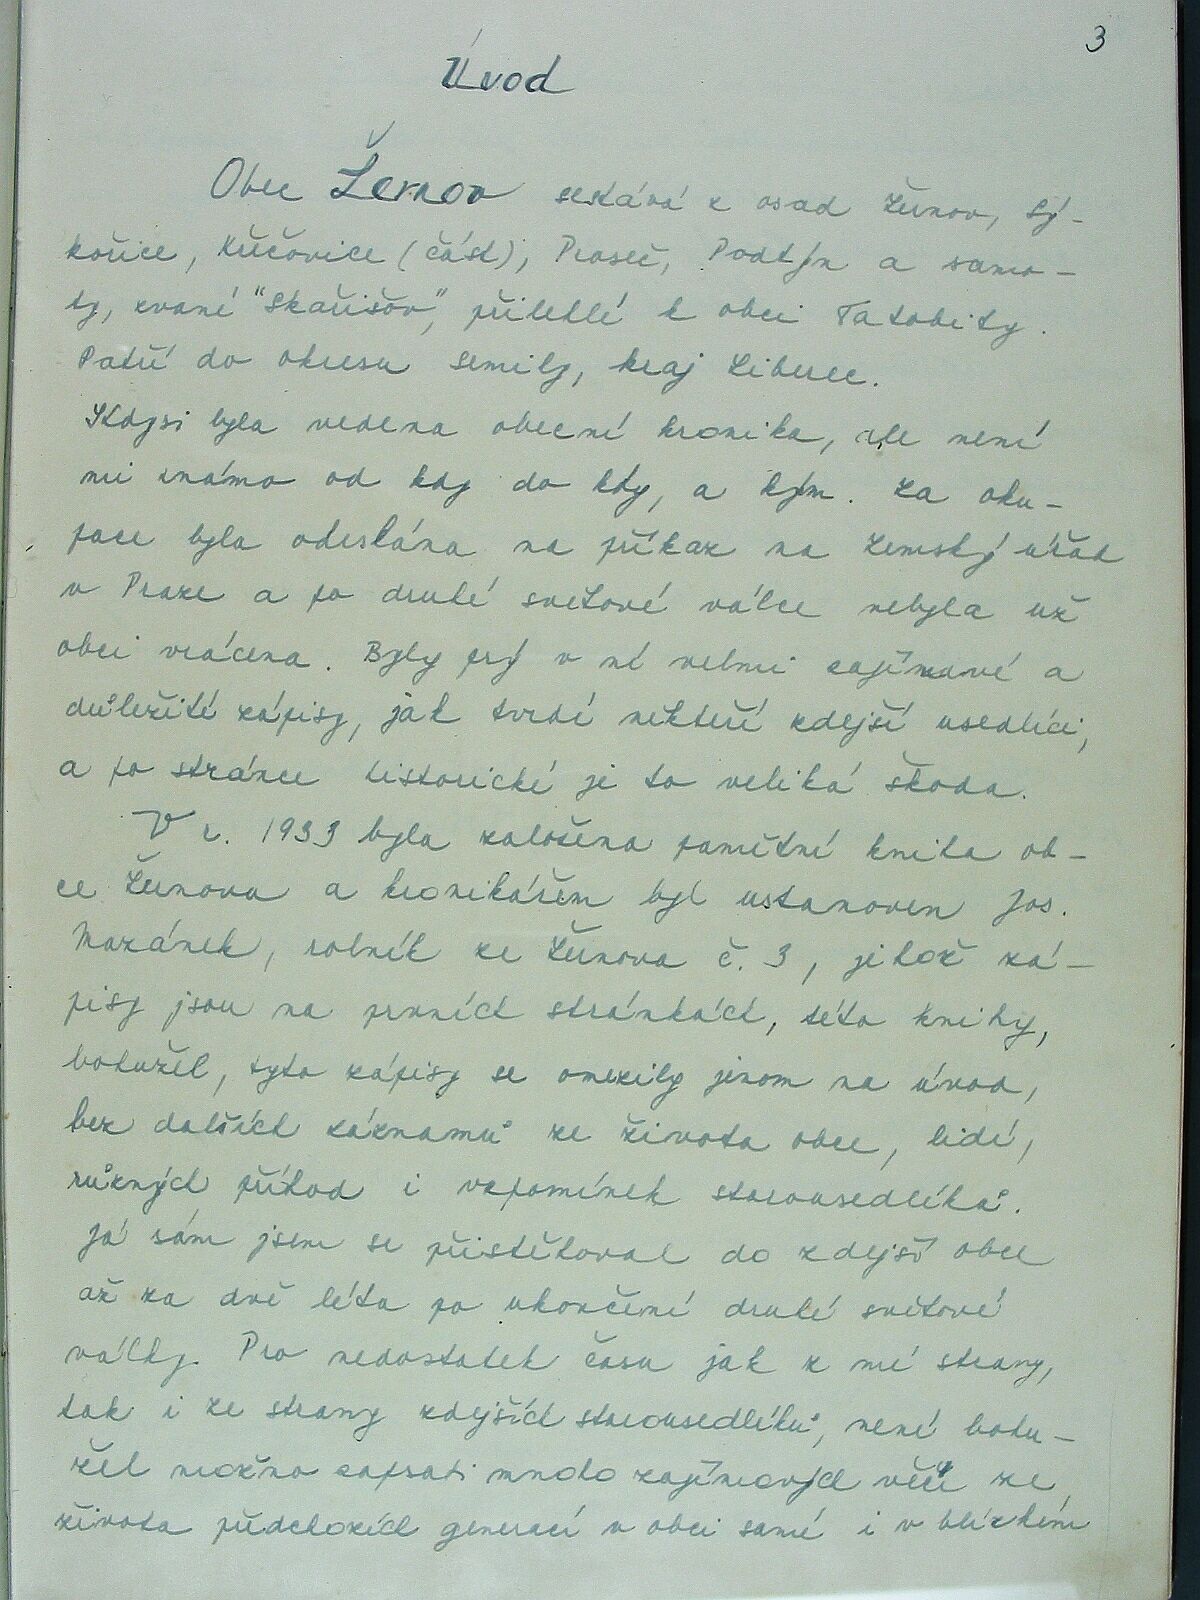 3
Úvod
Obec Žernov sestává z osad Žernov, Sý-
kořice, Křečovice (část), Proseč, Podtýn a samo-
ty, zvané "Skařišov", přilehlé k obci Tatobity.
Patří do okresu Semily, kraj Liberec.
Kdysi byla vedena obecní kronika, ale není
mi známo od kdy do kdy, a kým. Za oku-
pace byla odeslána na příkaz na zemský úřad
v Praze a po druhé světové válce nebyla už
obci vrácena. Byly prý v ní velmi zajímavé a
důležité zápisy, jak tvrdí někteří zdejší usedlíci,
a po stránce historické je to veliká škoda.
V r. 1933 byla založena pamětní kniha ob-
ce Žernova a kronikářem byl ustanoven Jos.
Mazánek, rolník ze Žernova č. 3, jehož zá-
pisy jsou na prvních stránkách, této knihy,
bohužel, tyto zápisy se omezily jenom na úvod,
bez dalších záznamů ze života obce, lidí,
různých příhod i vzpomínek starousedlíků.
Já sám jsem se přistěhoval do zdejší obce
až za dvě léta po ukončení druhé světové
války. Pro nedostatek času jak z mé strany,
tak i ze strany zdejších starousedlíků, není bohu-
žel možno zapsati mnoho zajímavých věcí ze
života předchozích generací v obci samé i v blízkém